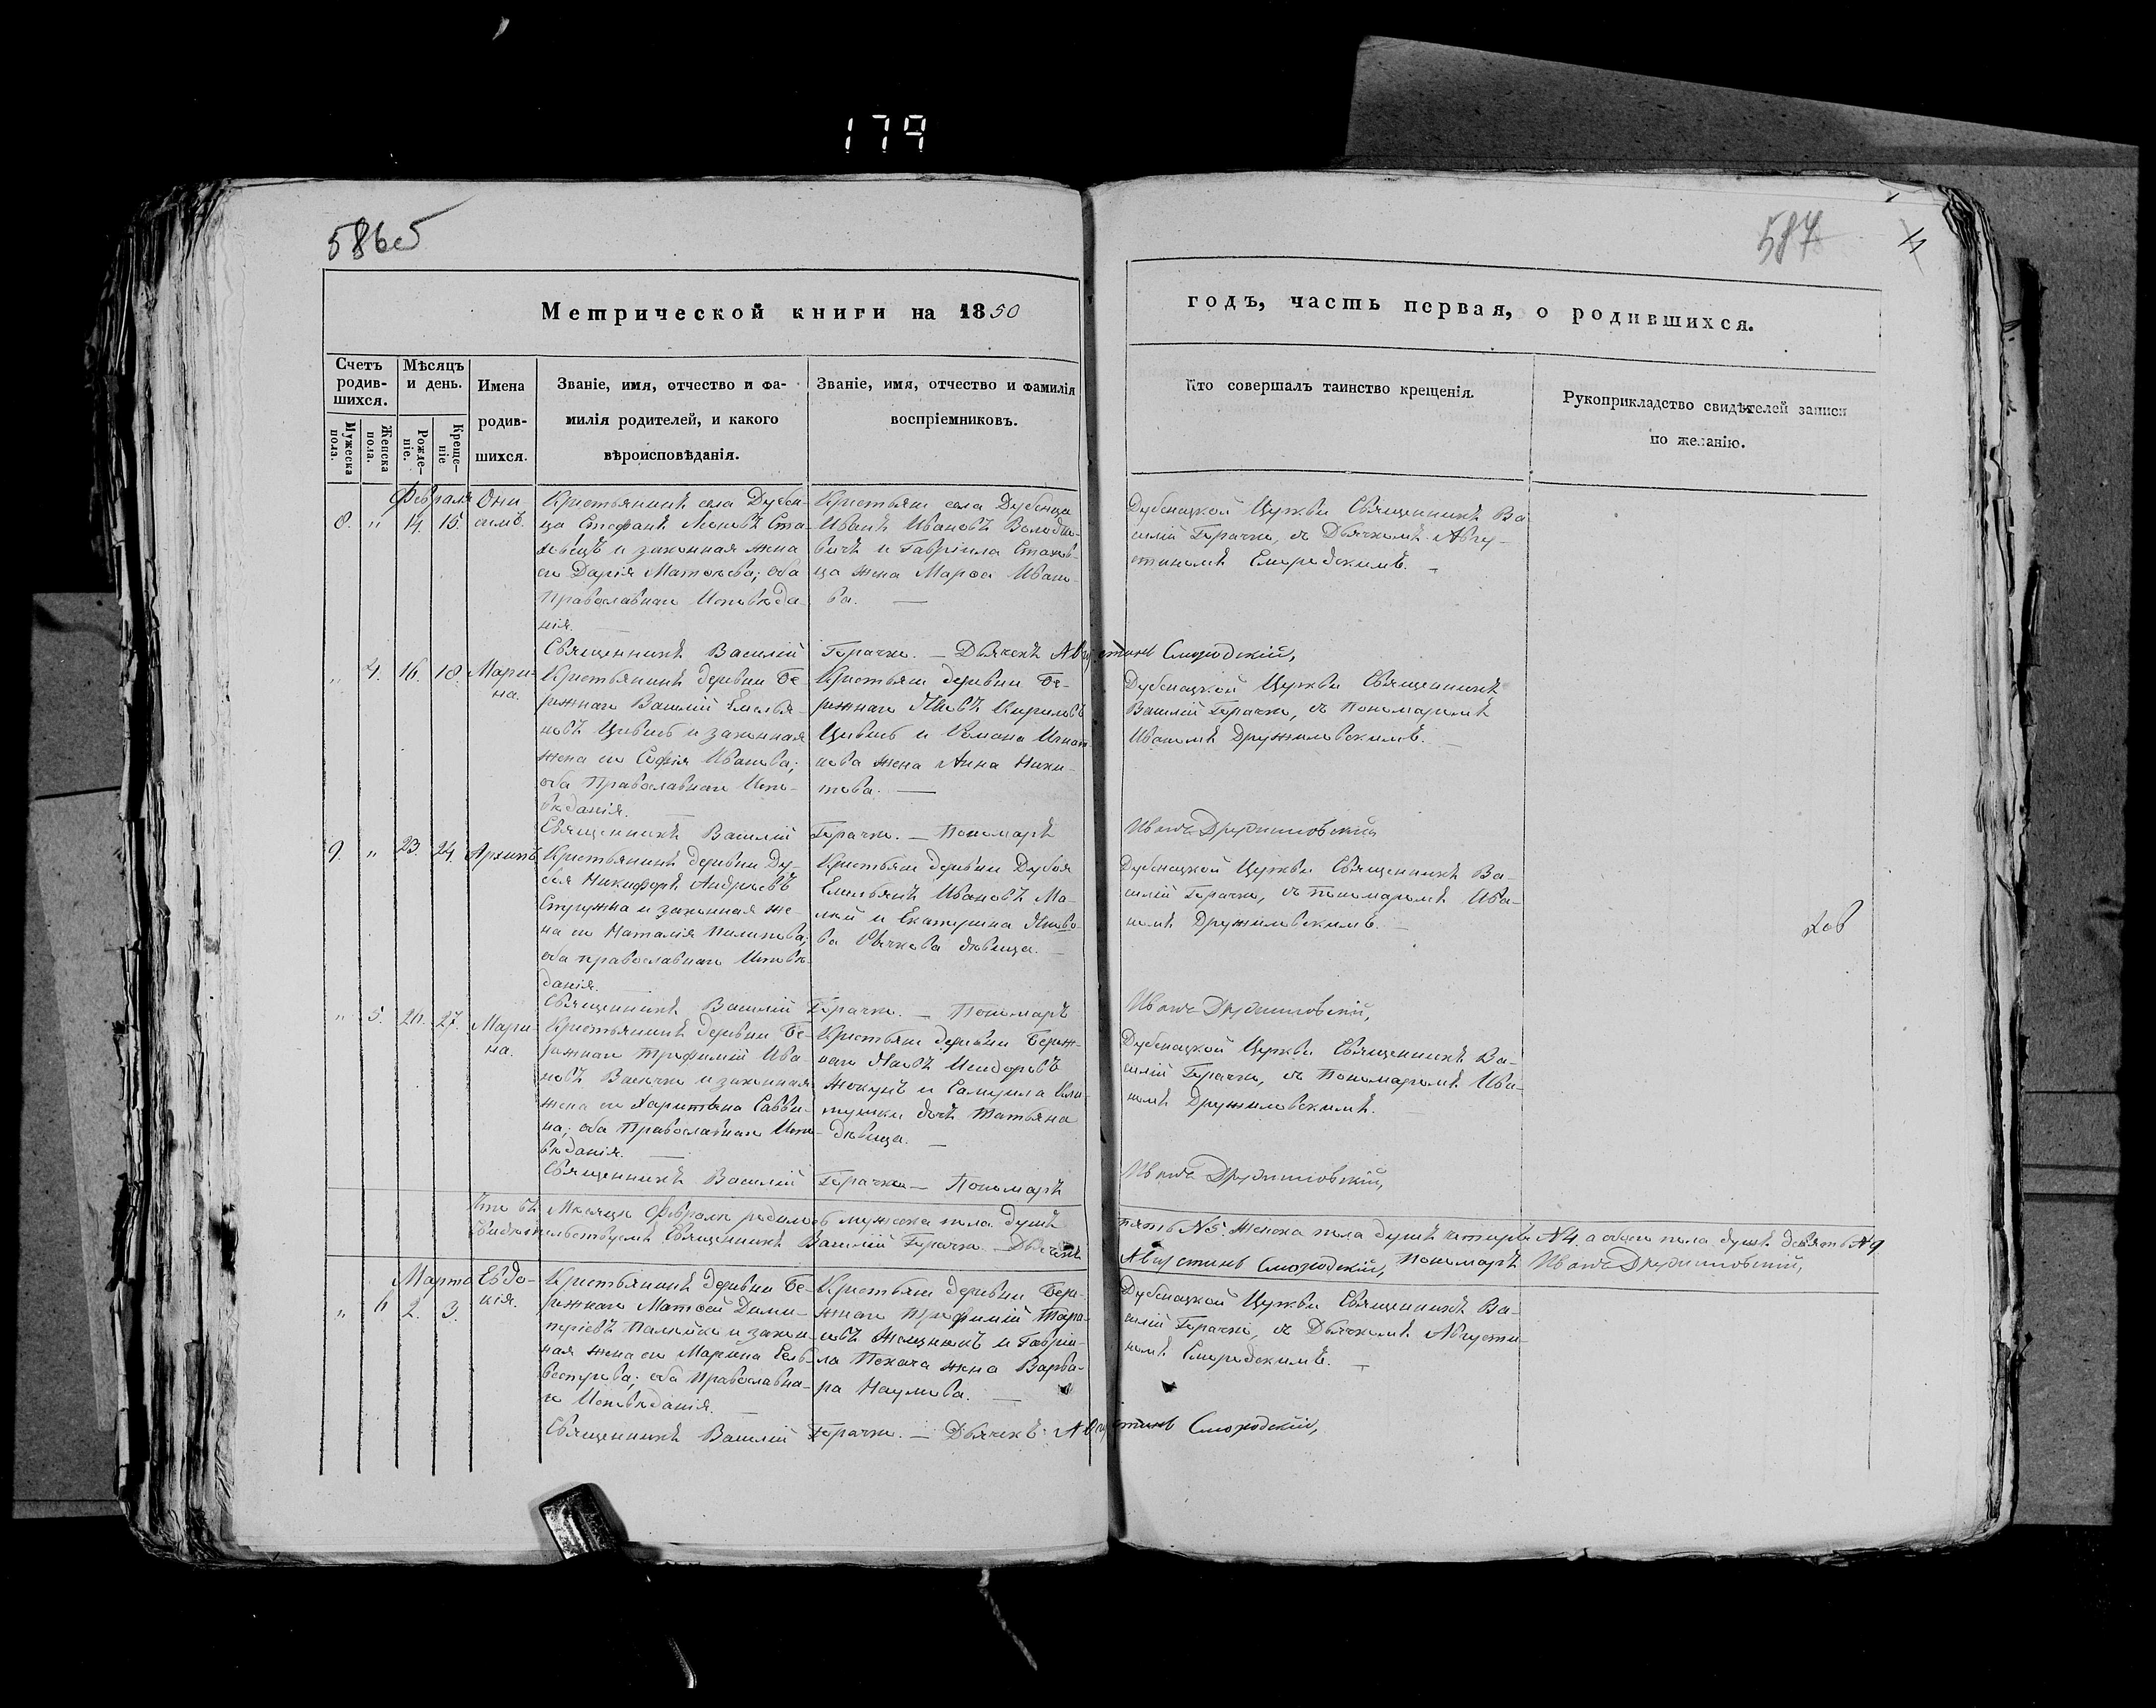 179
586об
587
Метрической книги на 1850
годъ, часть первая, о родившихся.
Счетъ родив-шихся.
Мѣсяцъ и день.
Имена родив-шихся.
Званіе, имя, отчество и фа-
милія родителей, и какого
вѣроисповѣданія.
Званіе, имя, отчество и фамилія
воспріемниковъ.
Кто совершалъ таинство крещенія.
Рукоприкладство свидѣтелей записи
по желанію.
Мужеска пола.
Женска пола.
Рожде-ніе.
Креще-ніе
Февраля
8. " 14. 15.
Они-
симъ.
Крестьянинъ села Дубен-
ца Стефанъ
и законная жена
его Дарія Матѳеева; оба
Православнаго Исповѣда-
нія.
Крестьяне села Дубенца
Иванъ Ивановъ
и Гавріила
жена Марѳа Ивано-
ва.
Дубенецкой Церкви Священникъ Ва
силій Горачко, съ Дьячкомъ Авгу-
стиномъ Смородскимъ.
Священникъ Василій Горачко. — Дьячекъ Августинъ Смородскій,
" 4. 16. 18.
Мари-
на.
Крестьянинъ деревни Бе-
режнаго Василій Емелья-
новъ Цывись и законная
жена его Софія Иванова;
оба Православнаго Испо-
вѣданія.
Крестьяне деревни Бе-
режнаго Яковъ Кириловъ
Цывись и Романа Игнат-
жена Анна Ники-
това.
Дубенецкой Церкви Священникъ
Василій Горачко, съ Пономаремъ
Иваномъ Дружиловскимъ.
Священникъ Василій Горачко. — Пономарь Иванъ Дружиловскій,
9. " 23. 24.
Архипъ
Крестьянинъ деревни Ду-
боя Никифоръ Андреевъ
Стружка и законная же-
на его Наталія Пилипова;
оба православнаго Исповѣ-
данія.
Крестьяне деревни Дубоя
Емельянъ Ивановъ Ма-
лей и Екатерина Яково-
ва дѣвица.
Дубенецкой Церкви Священникъ Ва-
силій Горачко, съ Пономаремъ Ива-
номъ Дружиловскимъ.
Священникъ Василій Горачко. — Пономарь Иванъ Дружиловскій,
" 5. 26. 27.
Мари-
на.
Крестьянинъ деревни Бе-
режнаго Трофимій Ива-
новъ и законная
жена его Харитына Савви-
на; оба Православнаго Испо-
вѣданія.
Крестьяне деревни Береж-
наго Яковъ Исидоровъ
и Самуила
дочь Татьяна
дѣвица.
Дубенецкой Церкви Священникъ Ва-
силій Горачко, съ Пономаремъ Ива-
номъ Дружиловскимъ.
Священникъ Василій Горачко — Пономарь Иванъ Дружиловскій,
Что въ Мѣсяцѣ Февралѣ родилось мужеска пола душъ пять №5. Женска пола душъ четыре №4. а обоего пола душъ девять №9
Свидѣтельствуемъ Священникъ Василій Горачко — Дьячекъ Августинъ Смородскій, Пономарь Иванъ Дружиловскій,
Марта
" 6 2. 3.
Евдо-
кія.
Крестьянинъ деревни Бе-
режнаго Матѳей Дими-
тріевъ Полойко и закон-
ная жена его Марина Сель-
вестрова; оба Православна-
го Исповѣданія.
Крестьяне деревни Бере-
жнаго Трофимій Тара-
совъ и Гаврі-
ла жена Варва-
ра Наумова.
Дубенецкой Церкви Священникъ Ва-
силій Горачко, съ Дьячкомъ Августи-
номъ Смородскимъ.
Священникъ Василій Горачко. — Дьячекъ Августинъ Смородскій,